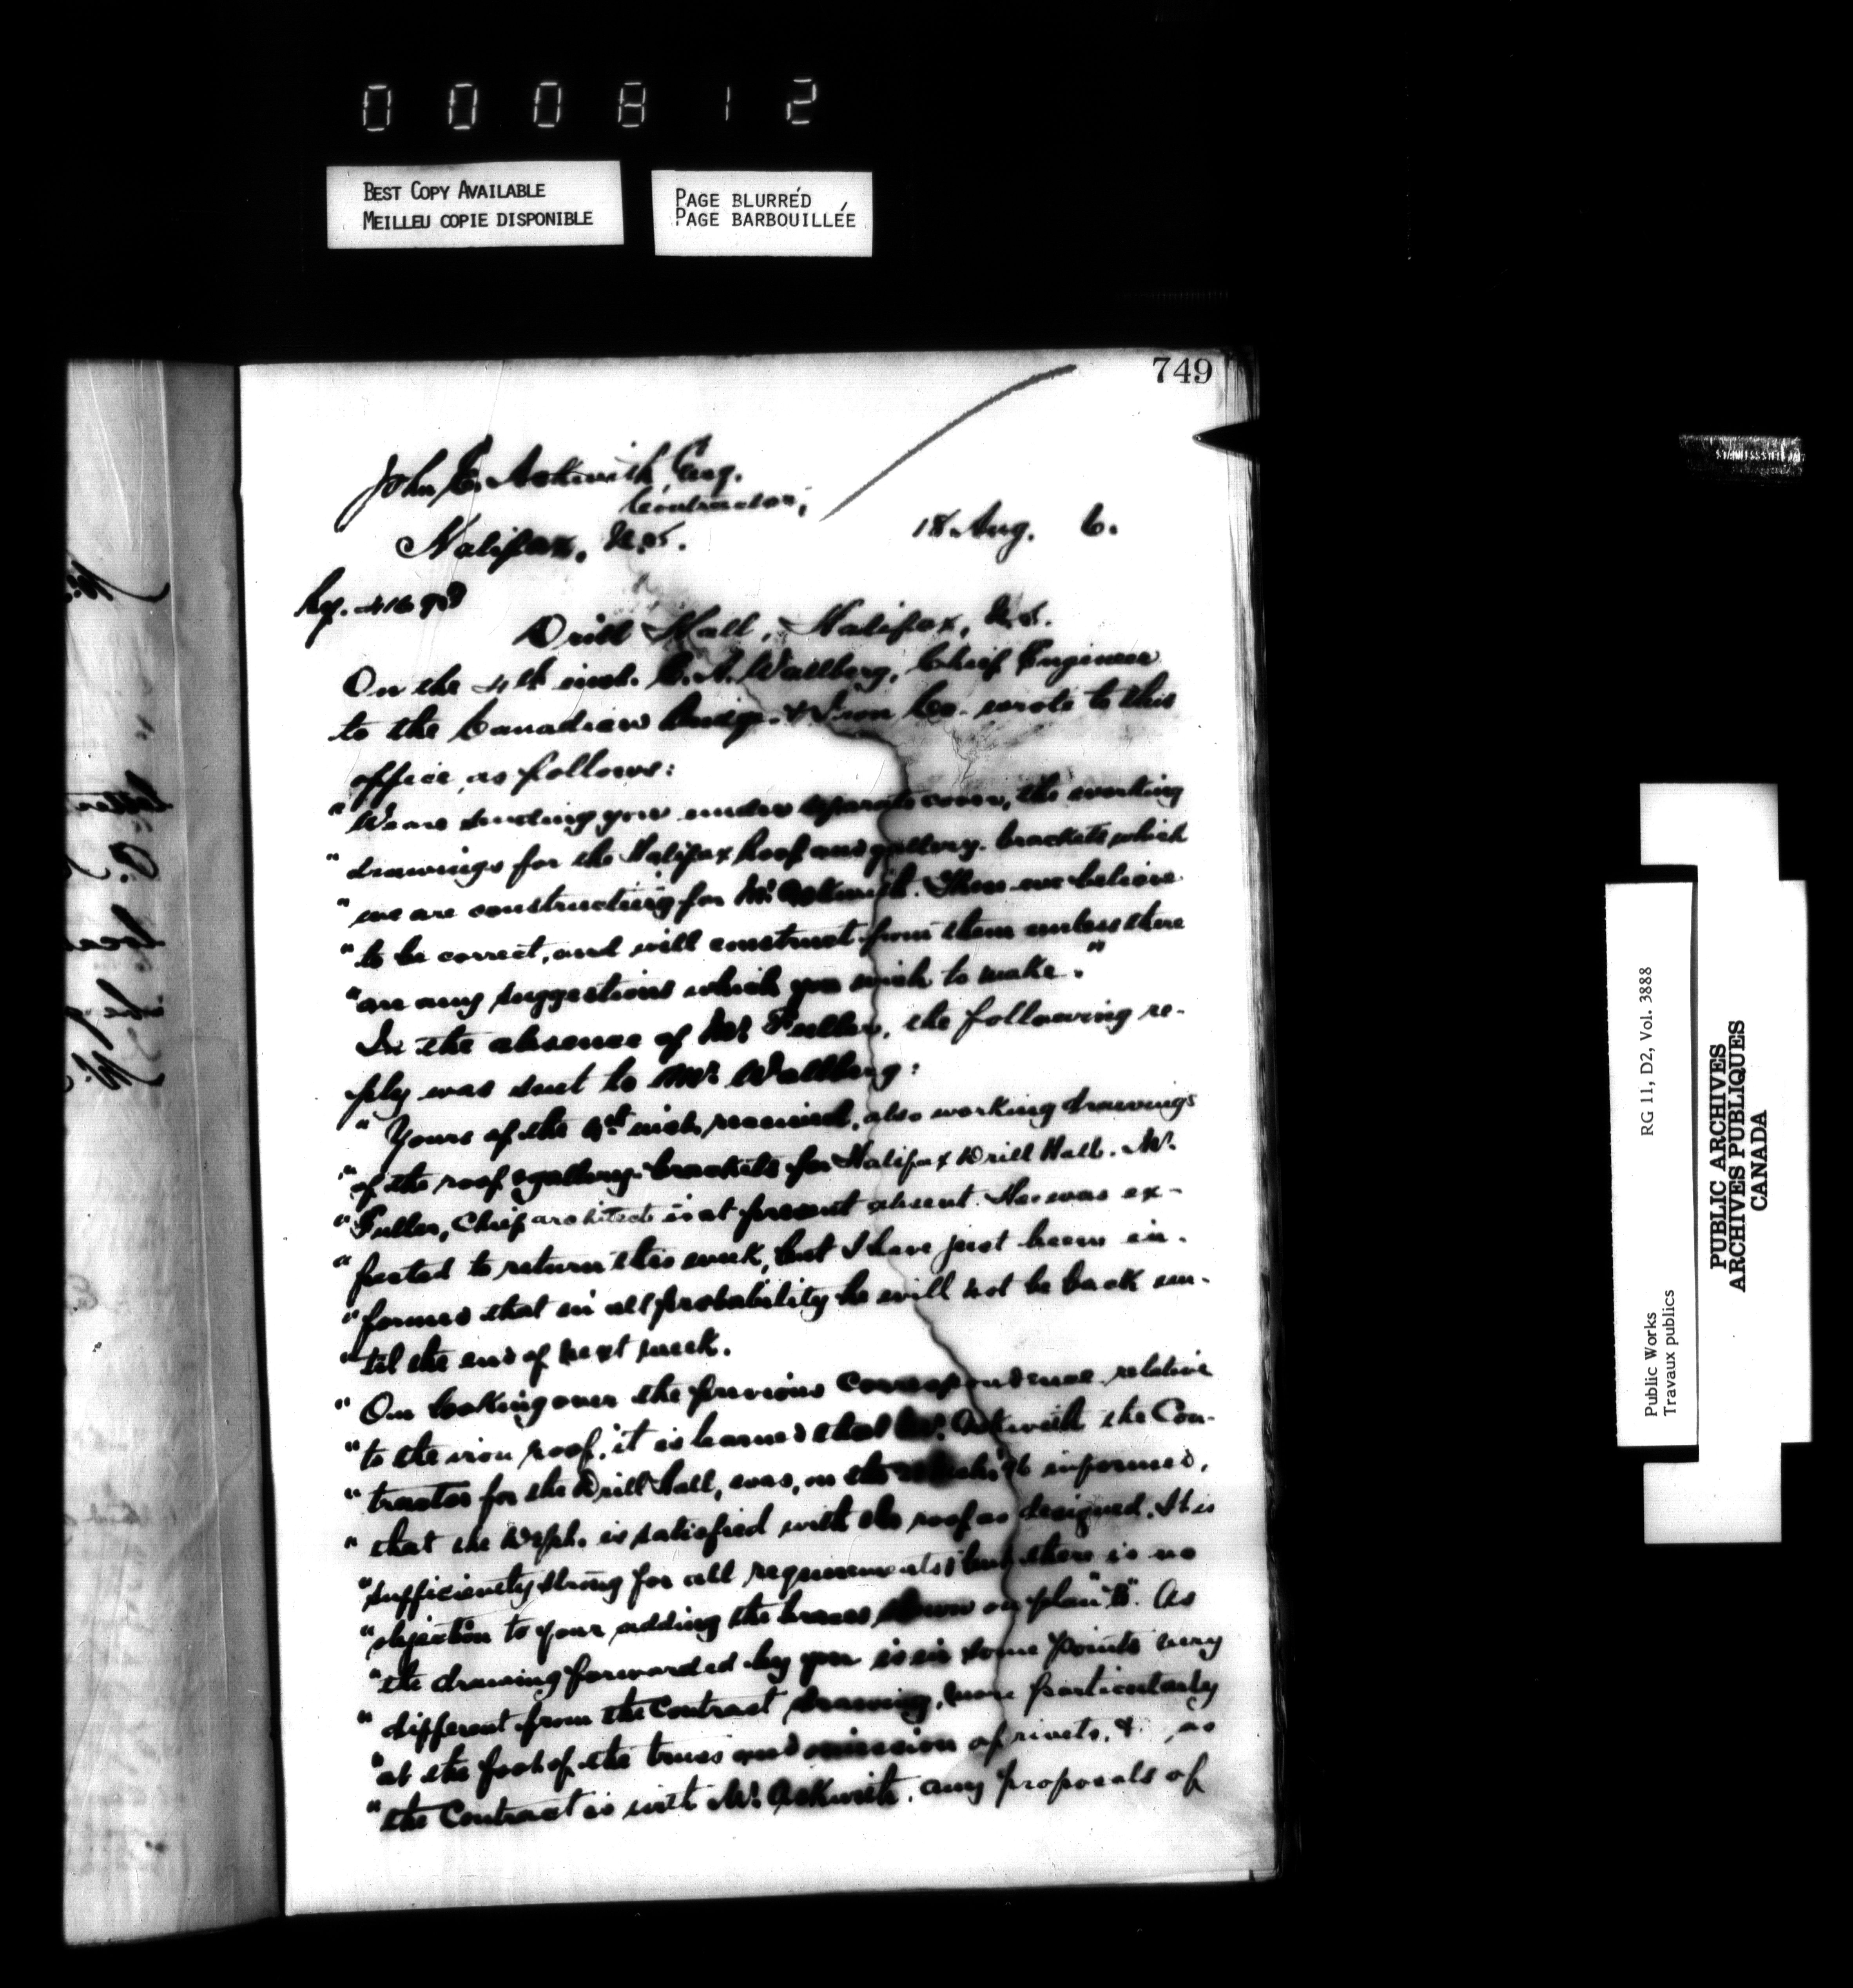 000812
BEST COPY AVAILABLE
MEILLEU COPIE DISPONIBLE
PAGE BLURRÉD
PAGE BARBOUILLÉE
749
John E. Askwith, Esq.
Contractor,
Halifax, N.S.
18 Aug. 6.
Drill Hall, Halifax, N.S.
On the 4th inst. E. A. Wallberg, Chief Engineer
to the Canadian Bridge & Iron Co. wrote to this
office, as follows:
"We are sending you under separate cover, the working
"drawings for the Halifax Roof and gallery brackets which
"we are constructing for Mr. Askwith. These we believe
"to be correct, and will construct from them unless there
"are any suggestions which you wish to make."
In the absence of Mr. Fuller, the following re-
ply was sent to Mr. Wallberg:
"Yours of the inst. received, also working drawings
"of the roof & gallery brackets for Halifax Drill Hall. Mr.
"Fuller, Chief architect is at present absent. He was ex-
"pected to return this week, but I have just been in-
"formed that in all probability he will not be back un-
"til the end of next week.
"On looking over the previous correspondence relative
"to the iron roof, it is learned that Mr. Askwith the Con-
"tractor for the Drill Hall, was, on the informed,
"that the Deptt. is satisfied with the roof as designed. It is
"sufficiently strong for all requirements; but there is no
"objection to your adding the braces shown on plan "B". As
"the drawing forwarded by you is in some points very
"different from the contract drawing, more particularly
"at the foot of the truss and omission of rivets, &, as
"the Contract is with Mr. Askwith, any proposals of
Public Works
Travaux publics
RG 11, D2, Vol. 3888
PUBLIC ARCHIVES
ARCHIVES PUBLIQUES
CANADA